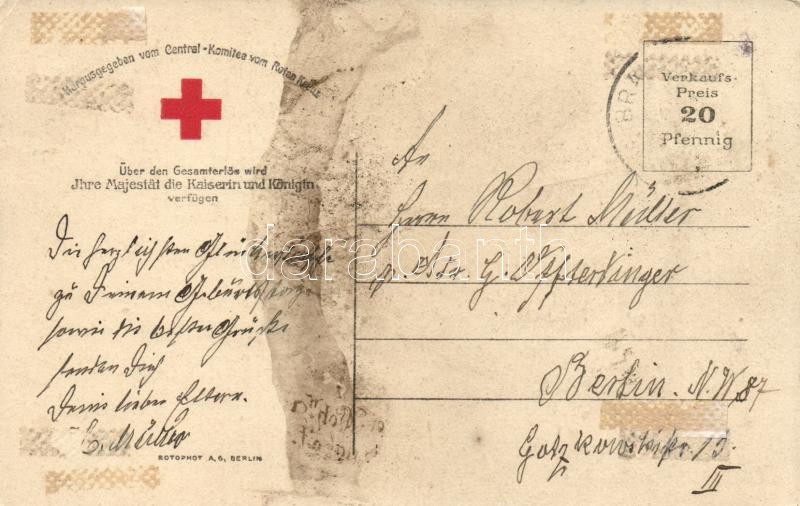 Herausgegeben vom Central-Komitee vom Roten Kreuz
Über den Gesamterlös wird
Jhre Majestät die Kaiserin und Königin
verfügen
Verkaufs-
Preis
20
Pfennig
Die herzlichsten Glückwünsche
zu Deinem Geburtstage
sowie die besten Grüße
senden Dir
Deine lieben Eltern.
C. Müller
ROTOPHOT A.G. BERLIN
An
Herrn Robert Müller
Berlin. N.W. 87
Gotzkowskistr. 13.
III
darabanth